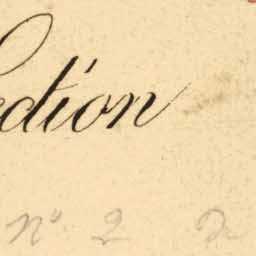 ection
No 2